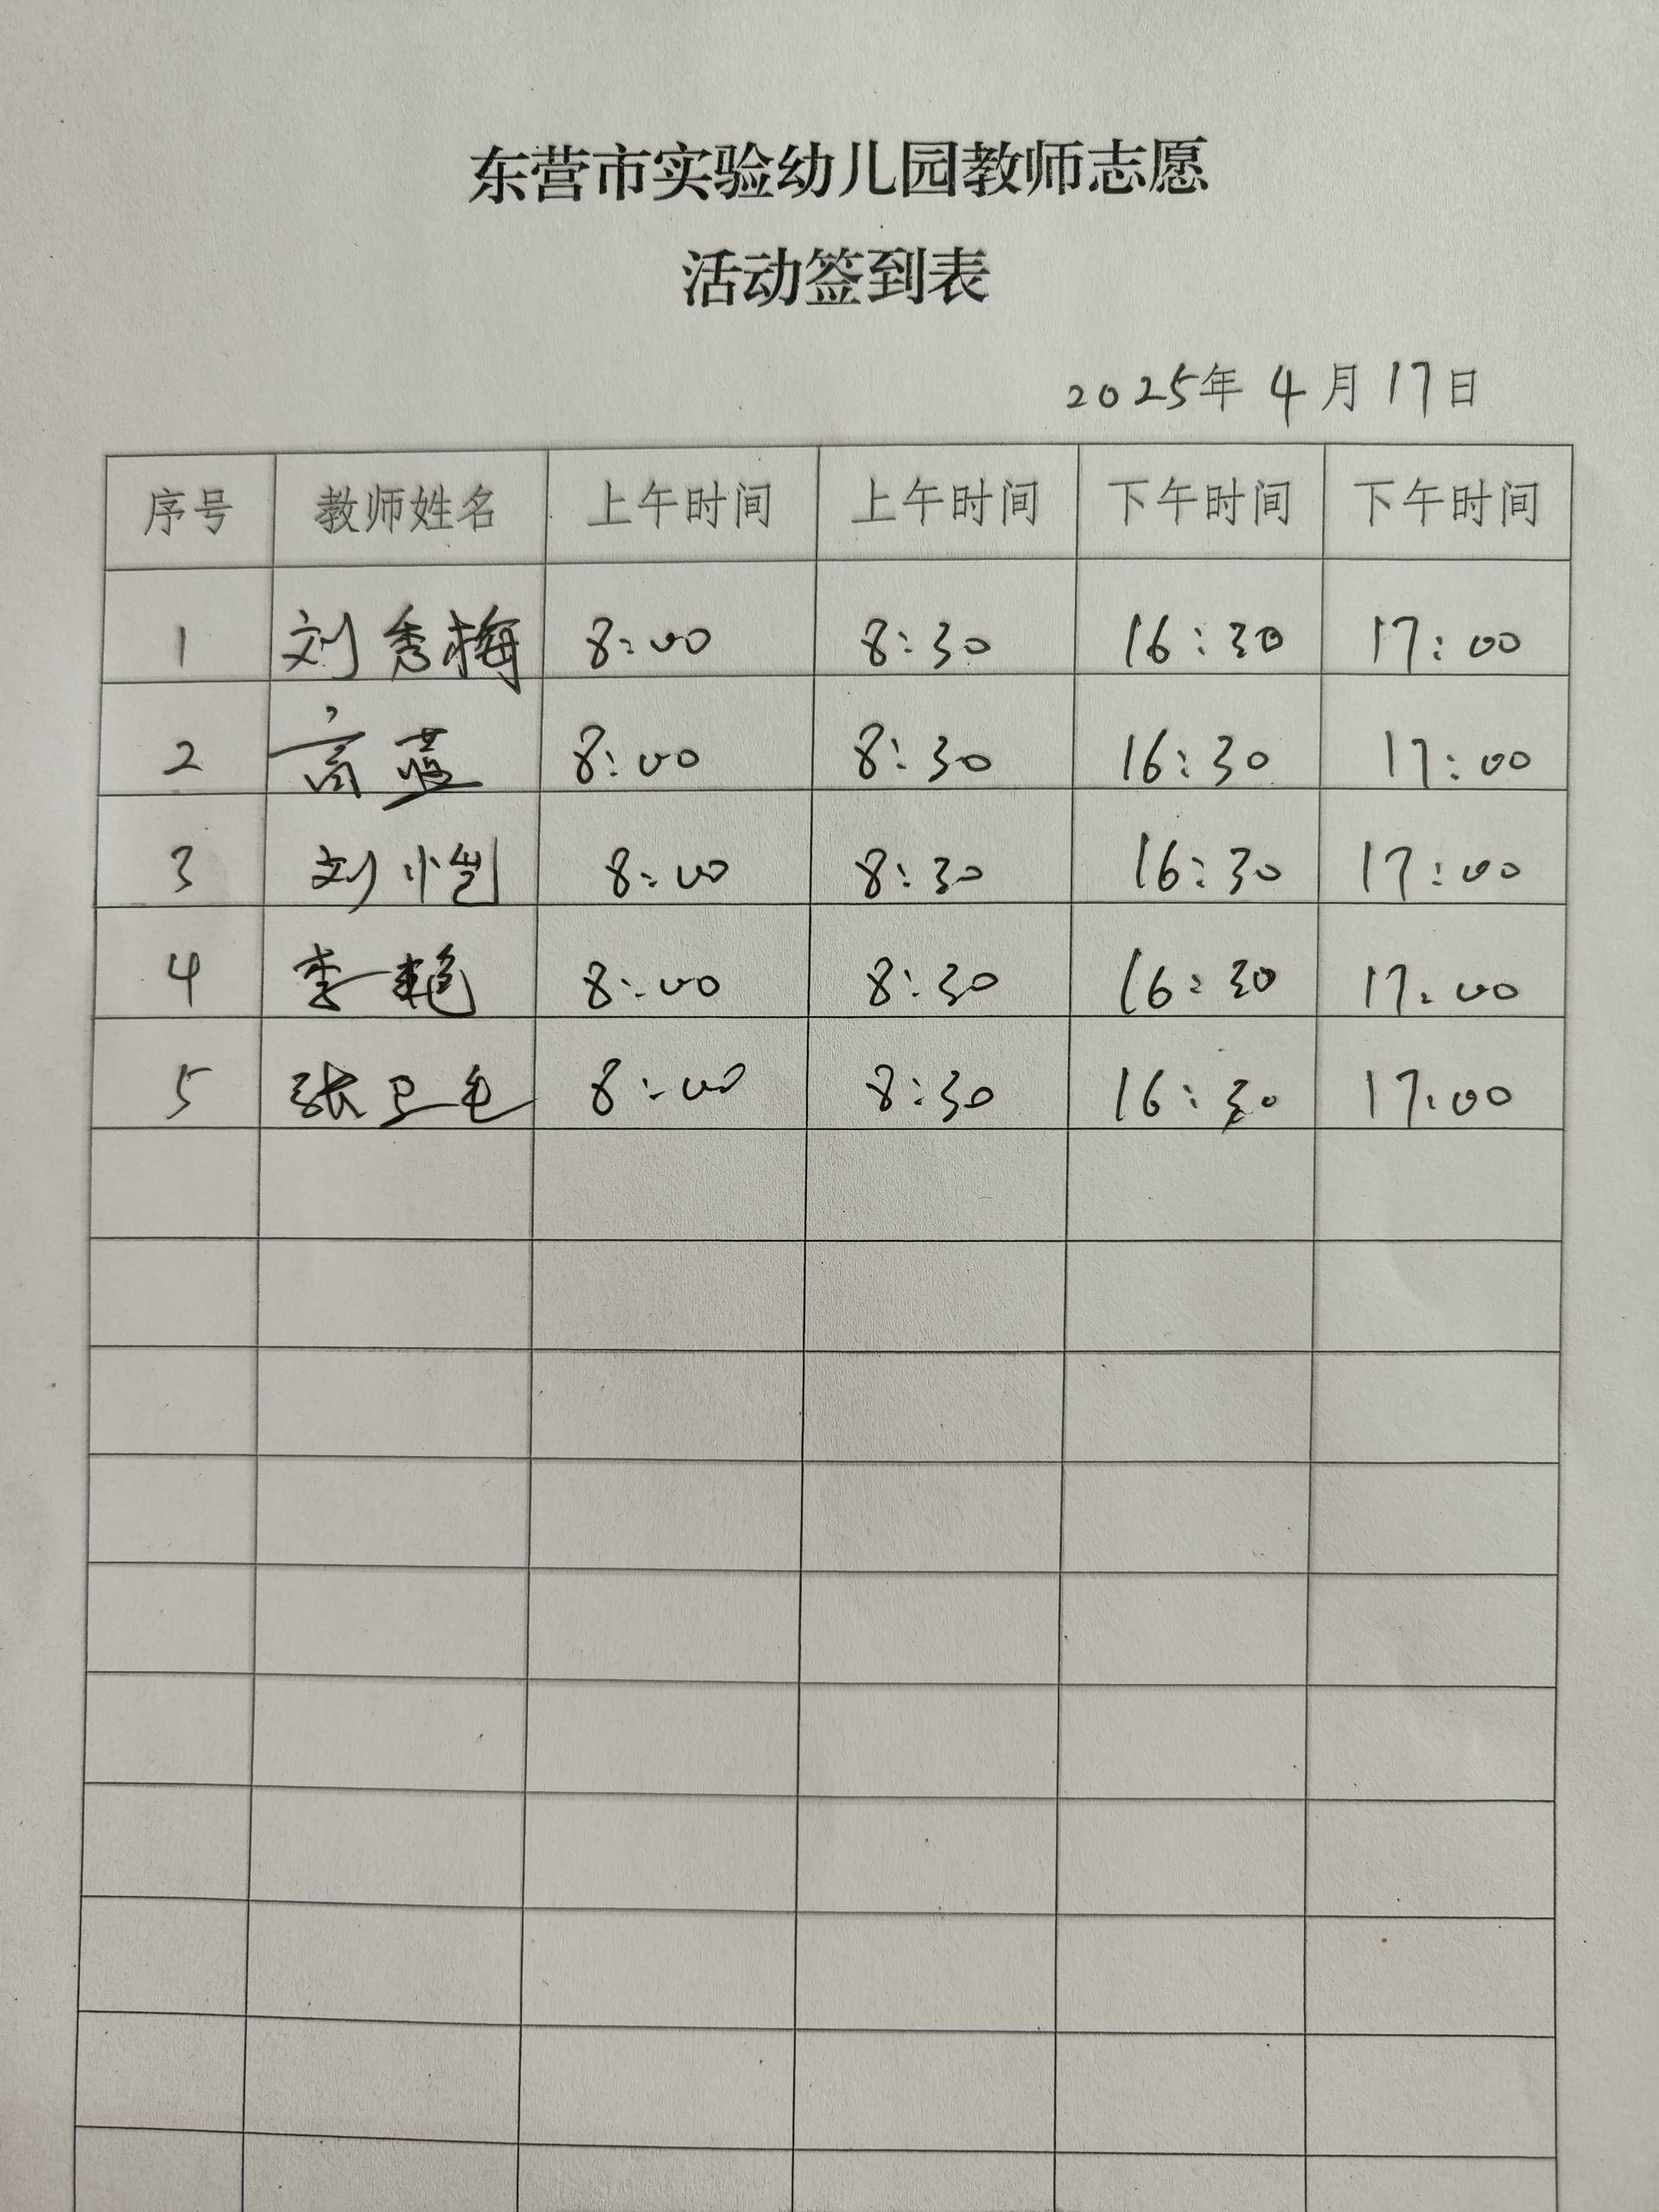 东营市实验幼儿园教师志愿
活动签到表
2025年 4月17日
序号 教师姓名 上午时间 上午时间 下午时间 下午时间
1 刘秀梅 8:00 8:30 16:30 17:00
2 高蓝 8:00 8:30 16:30 17:00
3 刘恺 8:00 8:30 16:30 17:00
4 李艳 8:00 8:30 16:30 17:00
5 张卫 8:00 8:30 16:30 17:00